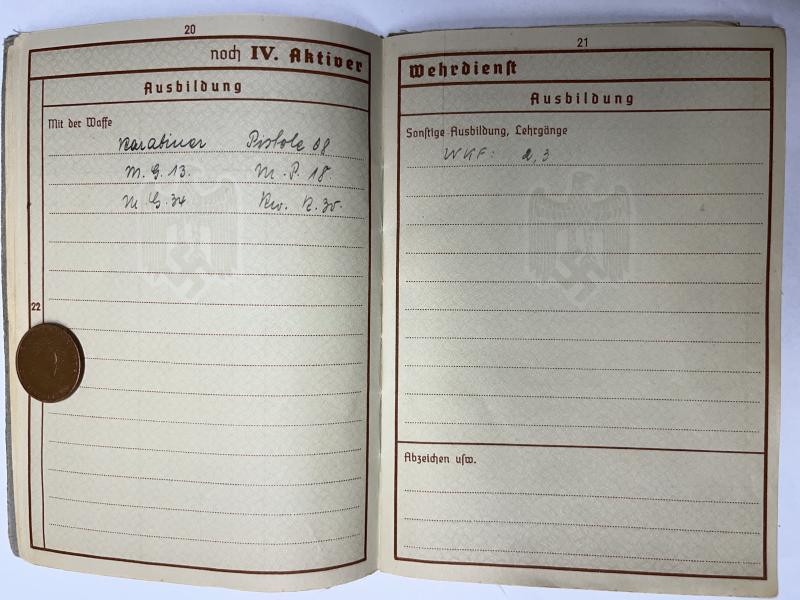 20
noch IV. Aktiver
Ausbildung
Mit der Waffe
Karabiner Pistole 08
M. G. 13. M. P. 18.
M. G. 34 Kw. K. 30.
22
21
Wehrdienst
Ausbildung
Sonstige Ausbildung, Lehrgänge
WKF: 2,3
Abzeichen usw.